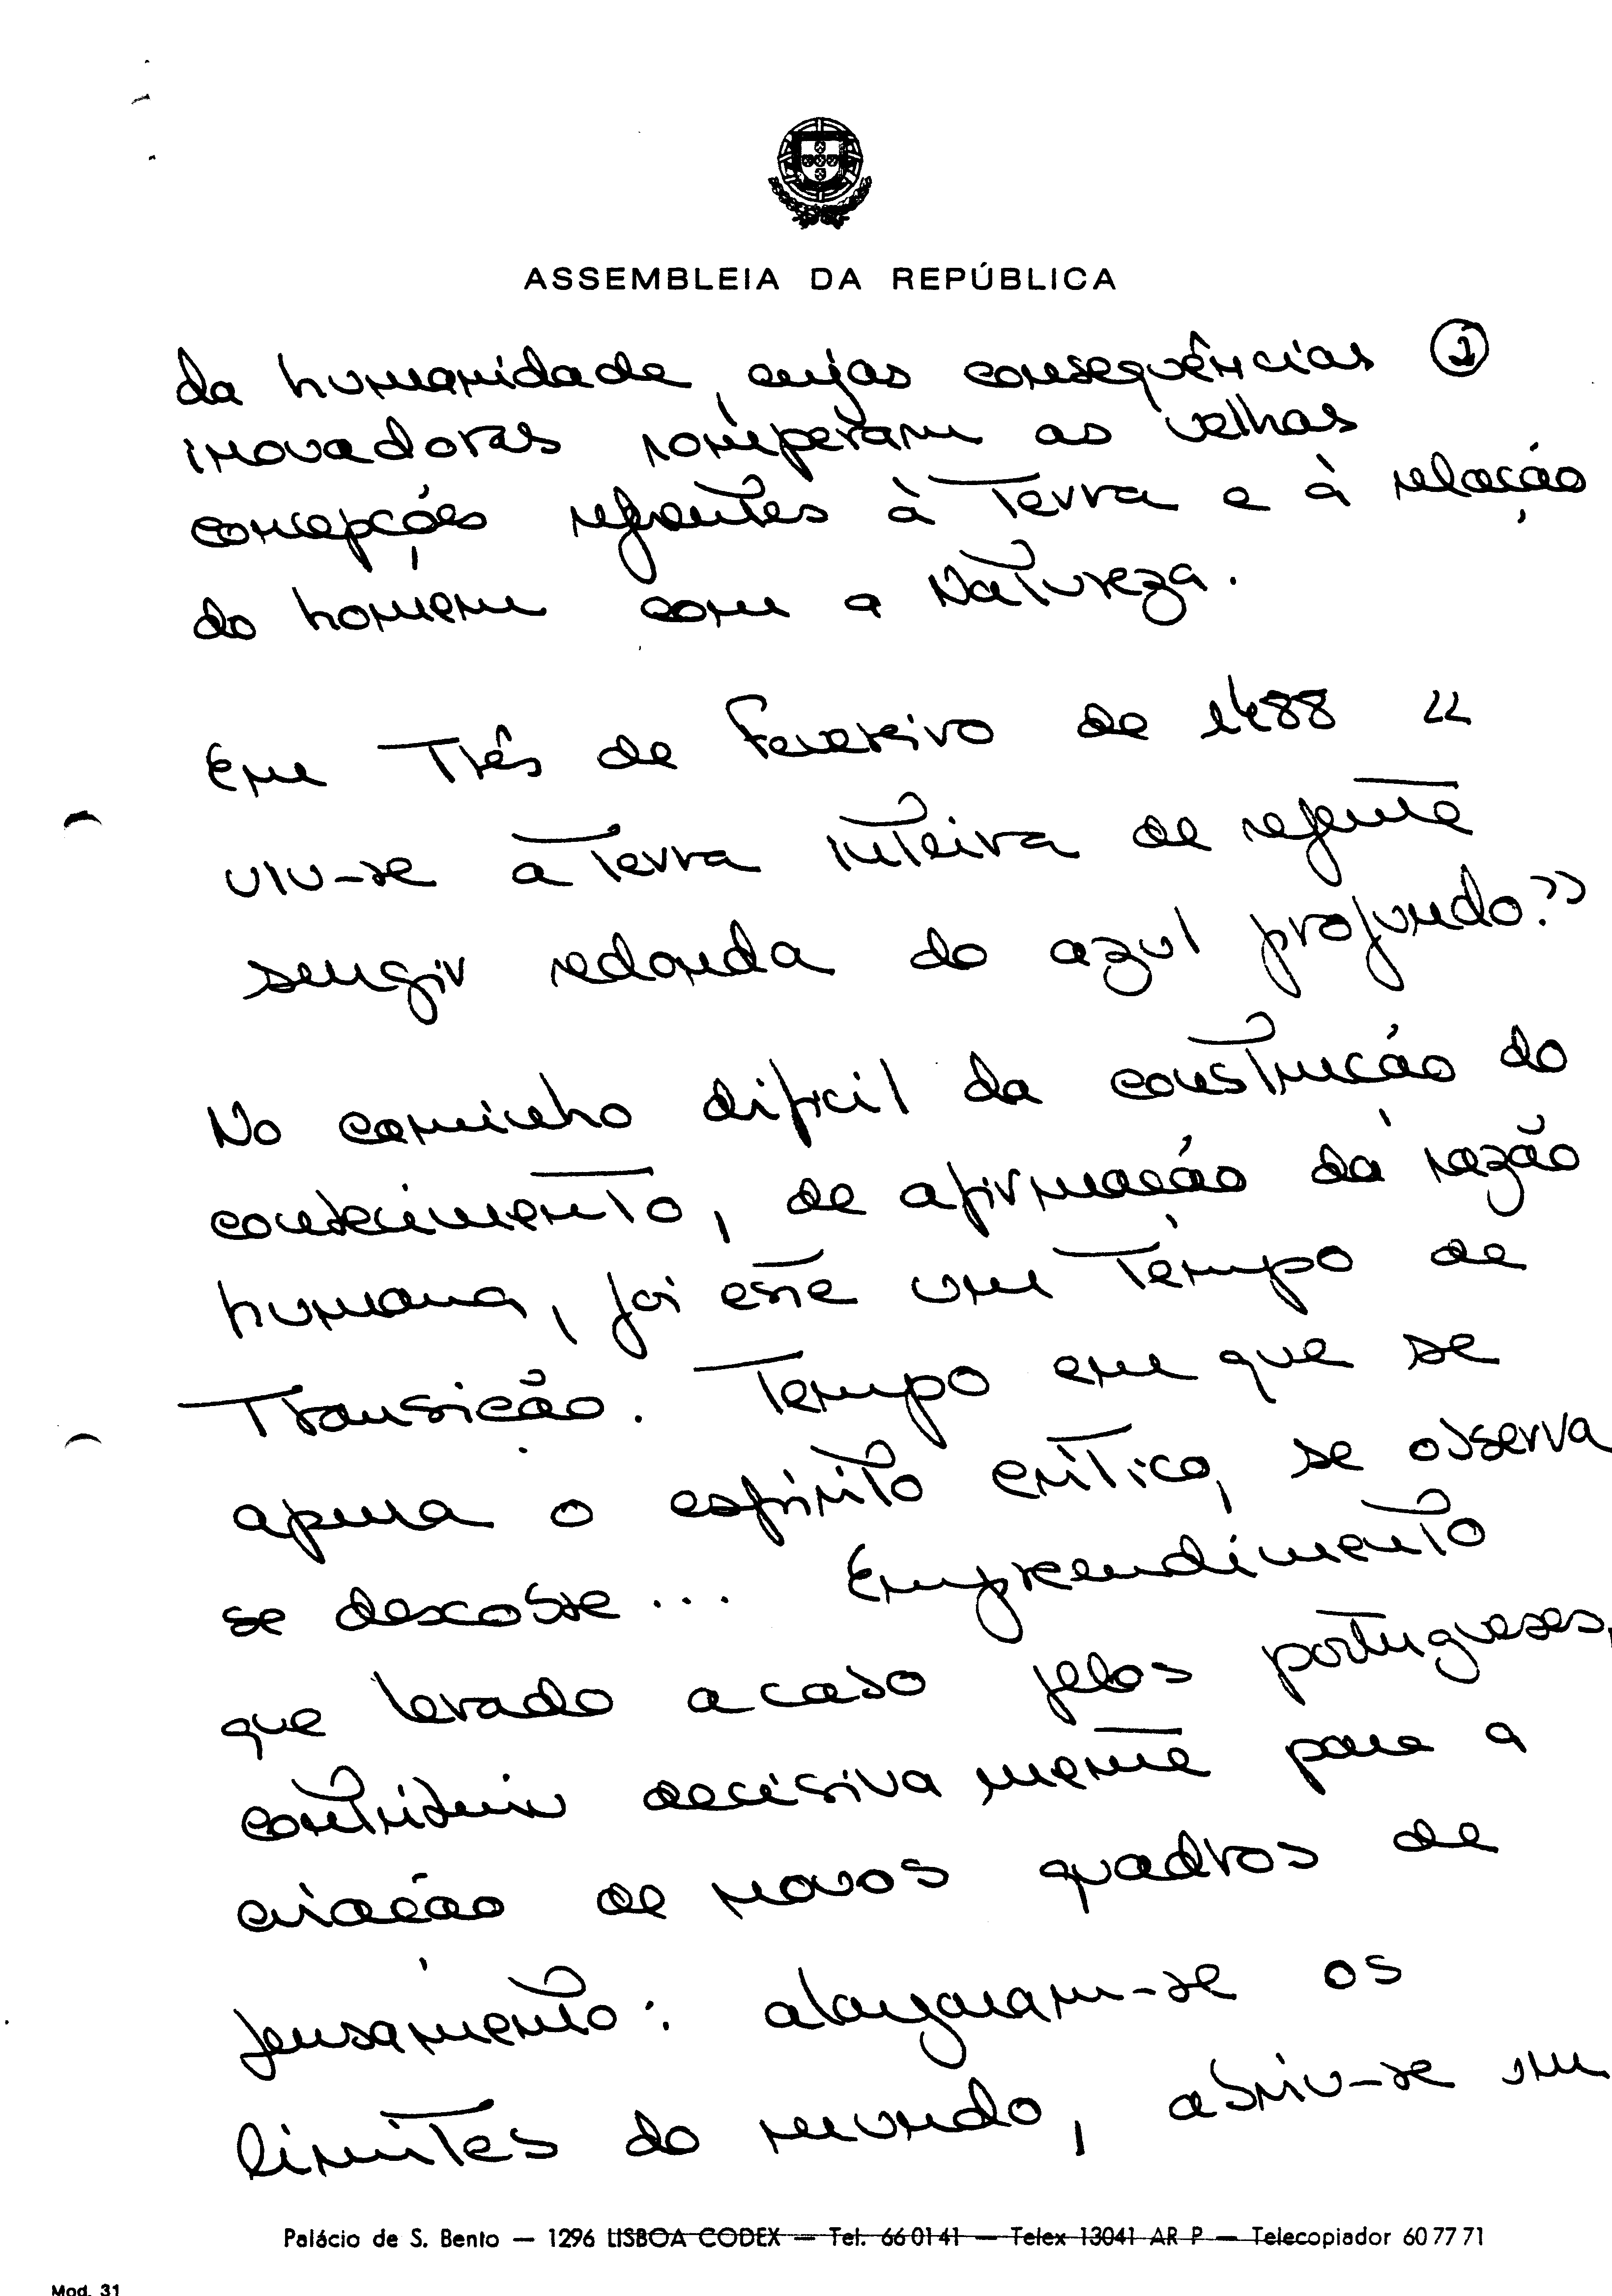 ASSEMBLEIA DA REPÚBLICA
da humanidade, cujas consequências 2
inovadoras romperam as velhas
concepções referentes à Terra e à relação
do homem com a Natureza.
Em Três de Fevereiro de 1488 «
viu-se a Terra inteira de repente
surgir redonda do azul profundo?»
No caminho difícil da construção do
conhecimento, de afirmação da razão
humana, foi este um Tempo de
Transição. Tempo em que se
apura o espírito crítico, se observa
se descobre... Empreendimento
que levado a caso pelos portugueses,
contribuiu decisivamente para a
criação de novos quadros de
pensamento: alargaram-se os
limites do mundo, abriu-se um
Palácio de S. Bento — 1296 LISBOA CODEX — Tel. 66 01 41 — Telex 13041 AR P — Telecopiador 60 77 71
Mod. 31